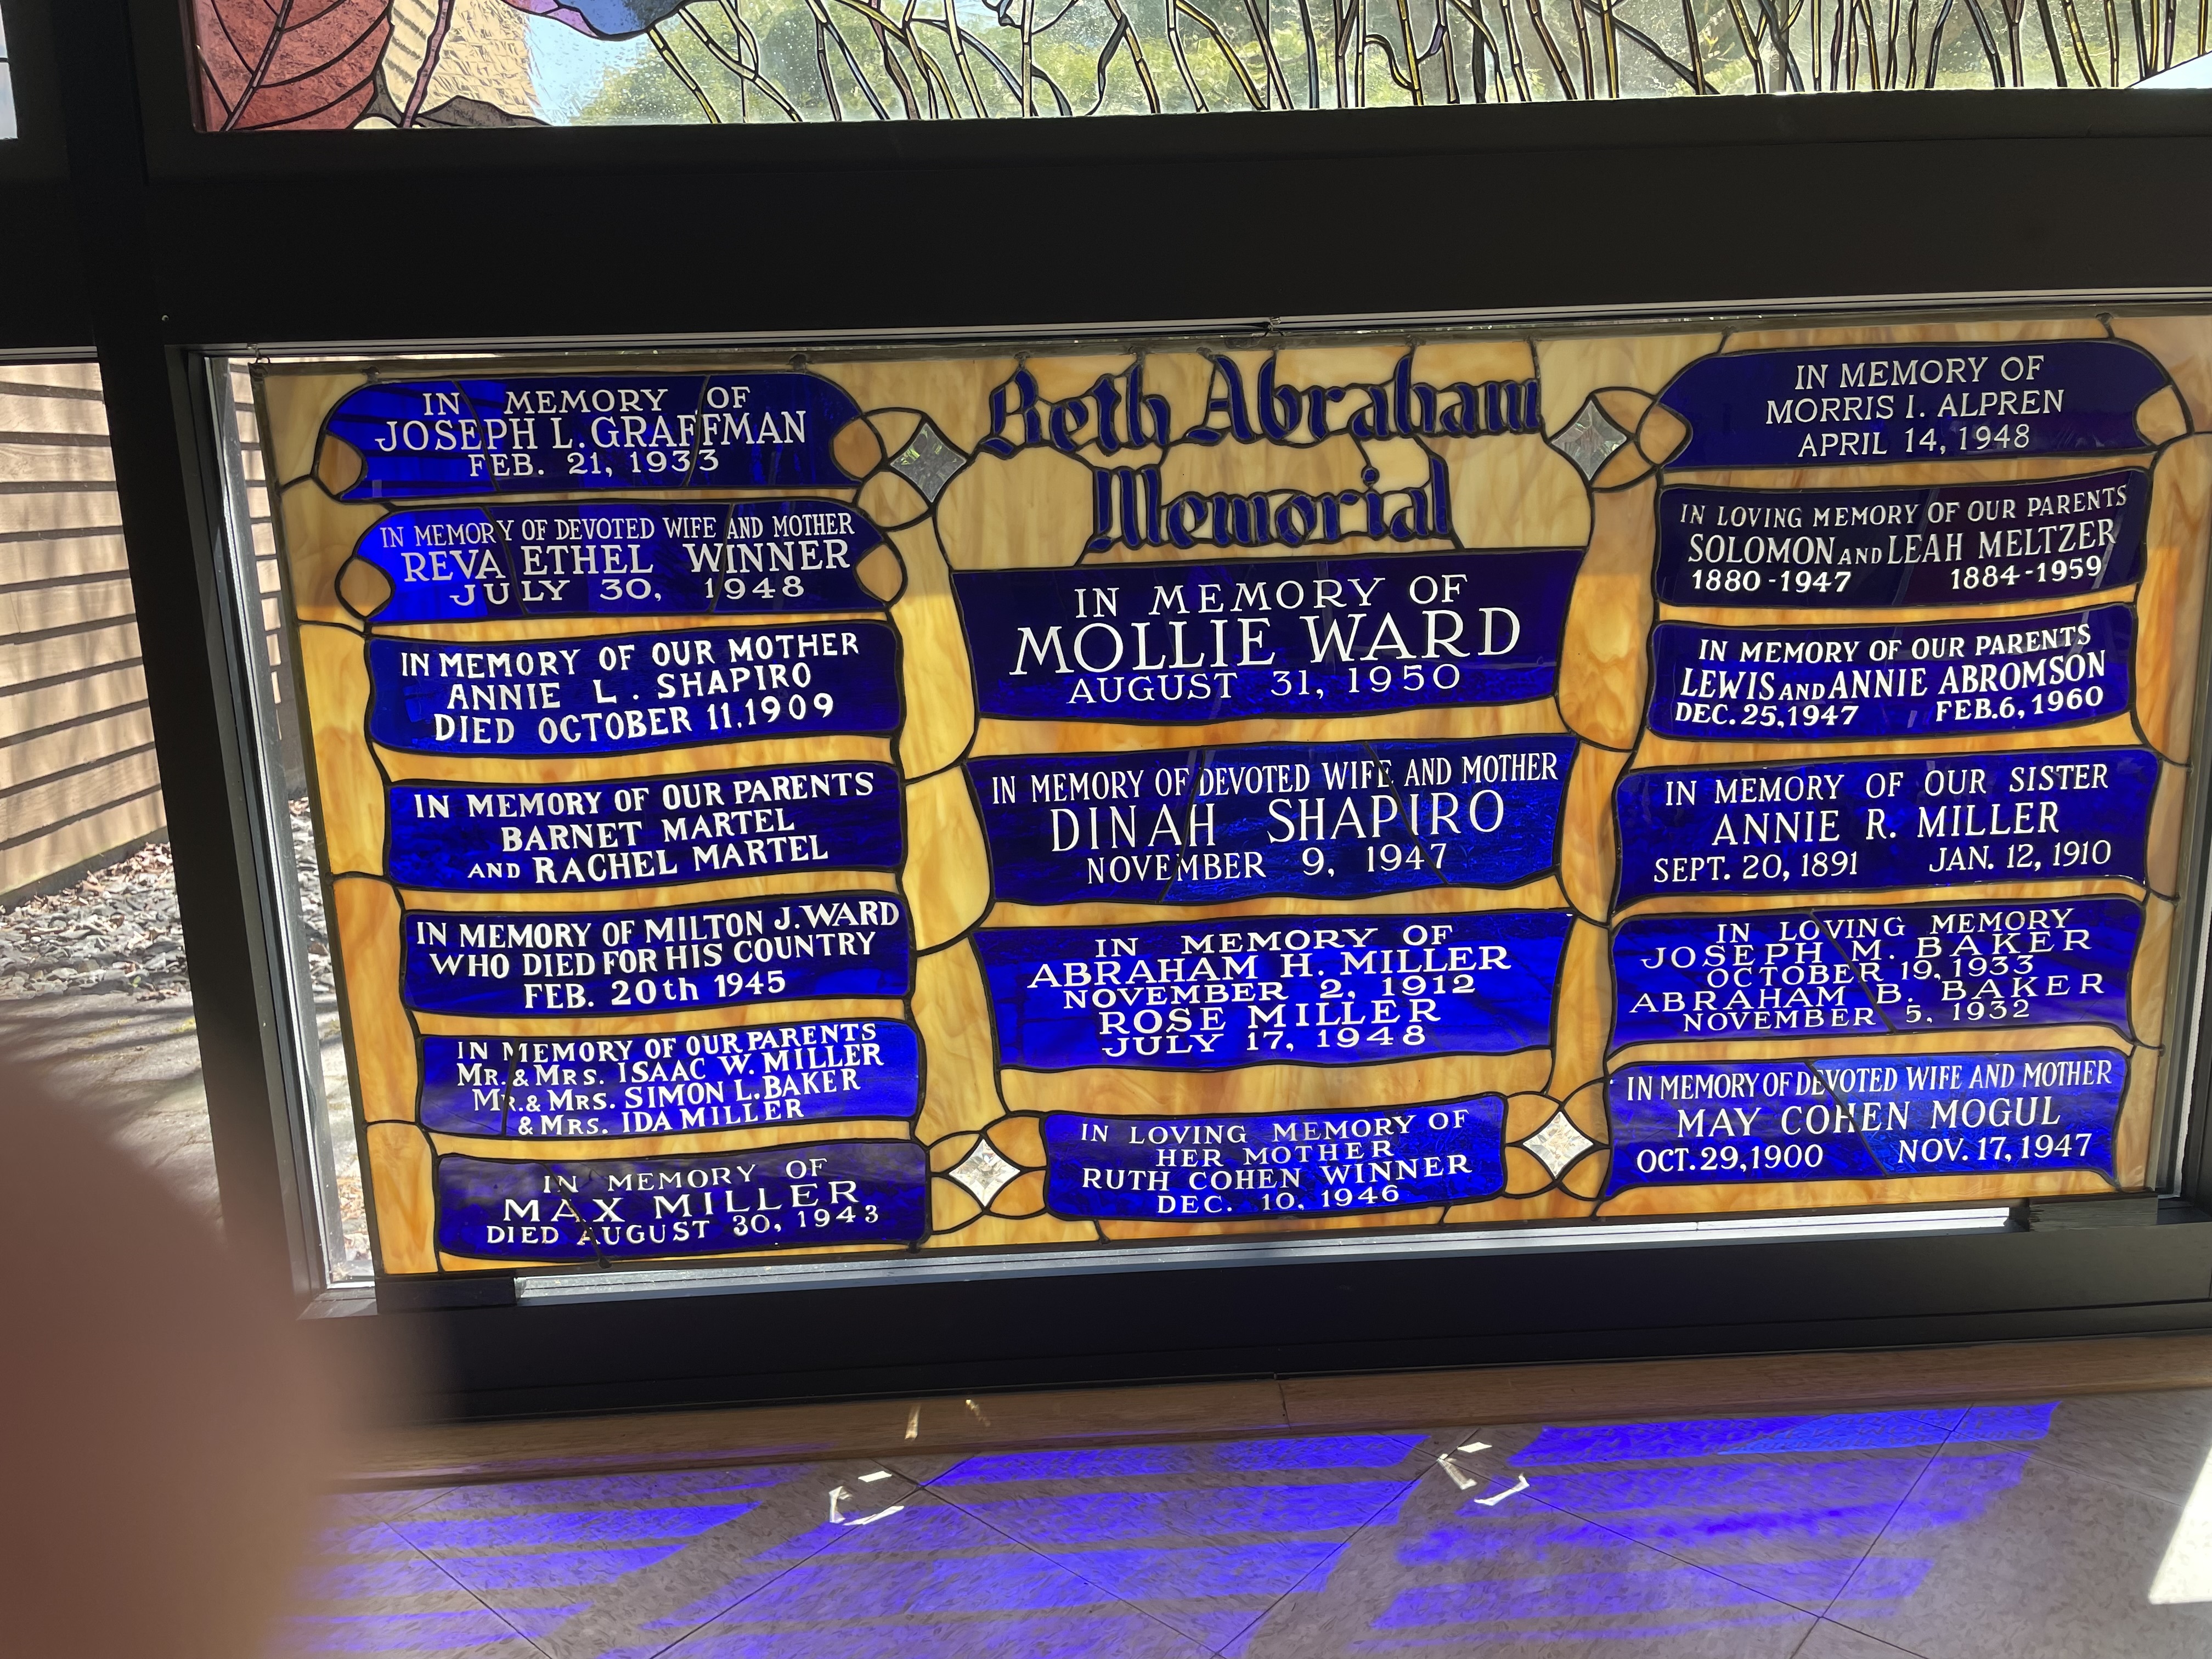 IN MEMORY OF
JOSEPH L. GRAFFMAN
FEB. 21, 1933
IN MEMORY OF DEVOTED WIFE AND MOTHER
REVA ETHEL WINNER
JULY 30, 1948
IN MEMORY OF OUR MOTHER
ANNIE L. SHAPIRO
DIED OCTOBER 11.1909
IN MEMORY OF OUR PARENTS
BARNET MARTEL
AND RACHEL MARTEL
IN MEMORY OF MILTON J. WARD
WHO DIED FOR HIS COUNTRY
FEB. 20th 1945
IN MEMORY OF OUR PARENTS
MR. & MRS. ISAAC W. MILLER
MR. & MRS. SIMON L. BAKER
& MRS. IDA MILLER
IN MEMORY OF
MAX MILLER
DIED AUGUST 30, 1943
Beth Abraham
Memorial
IN MEMORY OF
MOLLIE WARD
AUGUST 31, 1950
IN MEMORY OF DEVOTED WIFE AND MOTHER
DINAH SHAPIRO
NOVEMBER 9, 1947
IN MEMORY OF
ABRAHAM H. MILLER
NOVEMBER 2, 1912
ROSE MILLER
JULY 17, 1948
IN LOVING MEMORY OF
HER MOTHER
RUTH COHEN WINNER
DEC. 10, 1946
IN MEMORY OF
MORRIS I. ALPREN
APRIL 14, 1948
IN LOVING MEMORY OF OUR PARENTS
SOLOMON AND LEAH MELTZER
1880-1947 1884-1959
IN MEMORY OF OUR PARENTS
LEWIS AND ANNIE ABROMSON
DEC. 25, 1947 FEB. 6, 1960
IN MEMORY OF OUR SISTER
ANNIE R. MILLER
SEPT. 20, 1891 JAN. 12, 1910
IN LOVING MEMORY
JOSEPH M. BAKER
OCTOBER 19, 1933
ABRAHAM B. BAKER
NOVEMBER 5, 1932
IN MEMORY OF DEVOTED WIFE AND MOTHER
MAY COHEN MOGUL
OCT. 29, 1900 NOV. 17, 1947